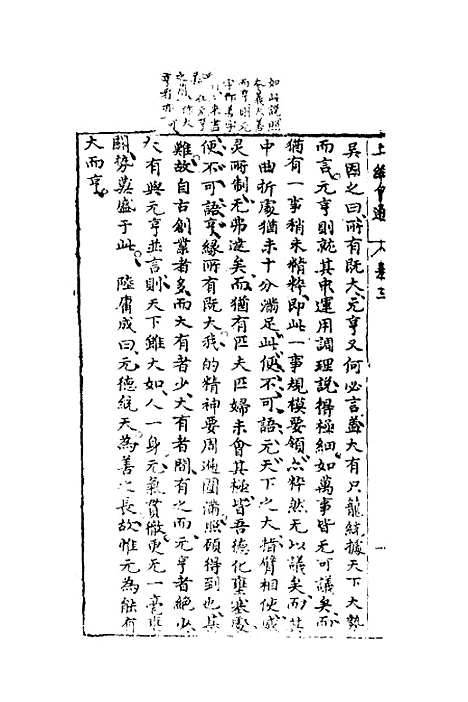 如此說照
大而亨
吳因之曰所有既大元亨又何必言蓋大有只籠統據天下大勢
而言元亨則就其中運用調理說得極細如萬事皆无可議矣而
猶有一事稍未精粹即此一事規模要領亦粹然无以議矣而其
中曲折處猶未十分滿足此便不可語元天下之大指臂相使咸
灵所制无弗遂矣而猶有匹夫匹婦未會其極皆吾德化壅塞處
便不可語亨緣所有既大我的精神要周遍圓滿照顧得到也甚
難故自古創業者多而大有者少大有者間有之而元亨者絕少
大有與元亨並言則天下雖大如人一身元氣貫徹更无一毫壅
閼勢莫盛于此 陸庸成曰元德統天為善之長故惟元為能有
大而亨